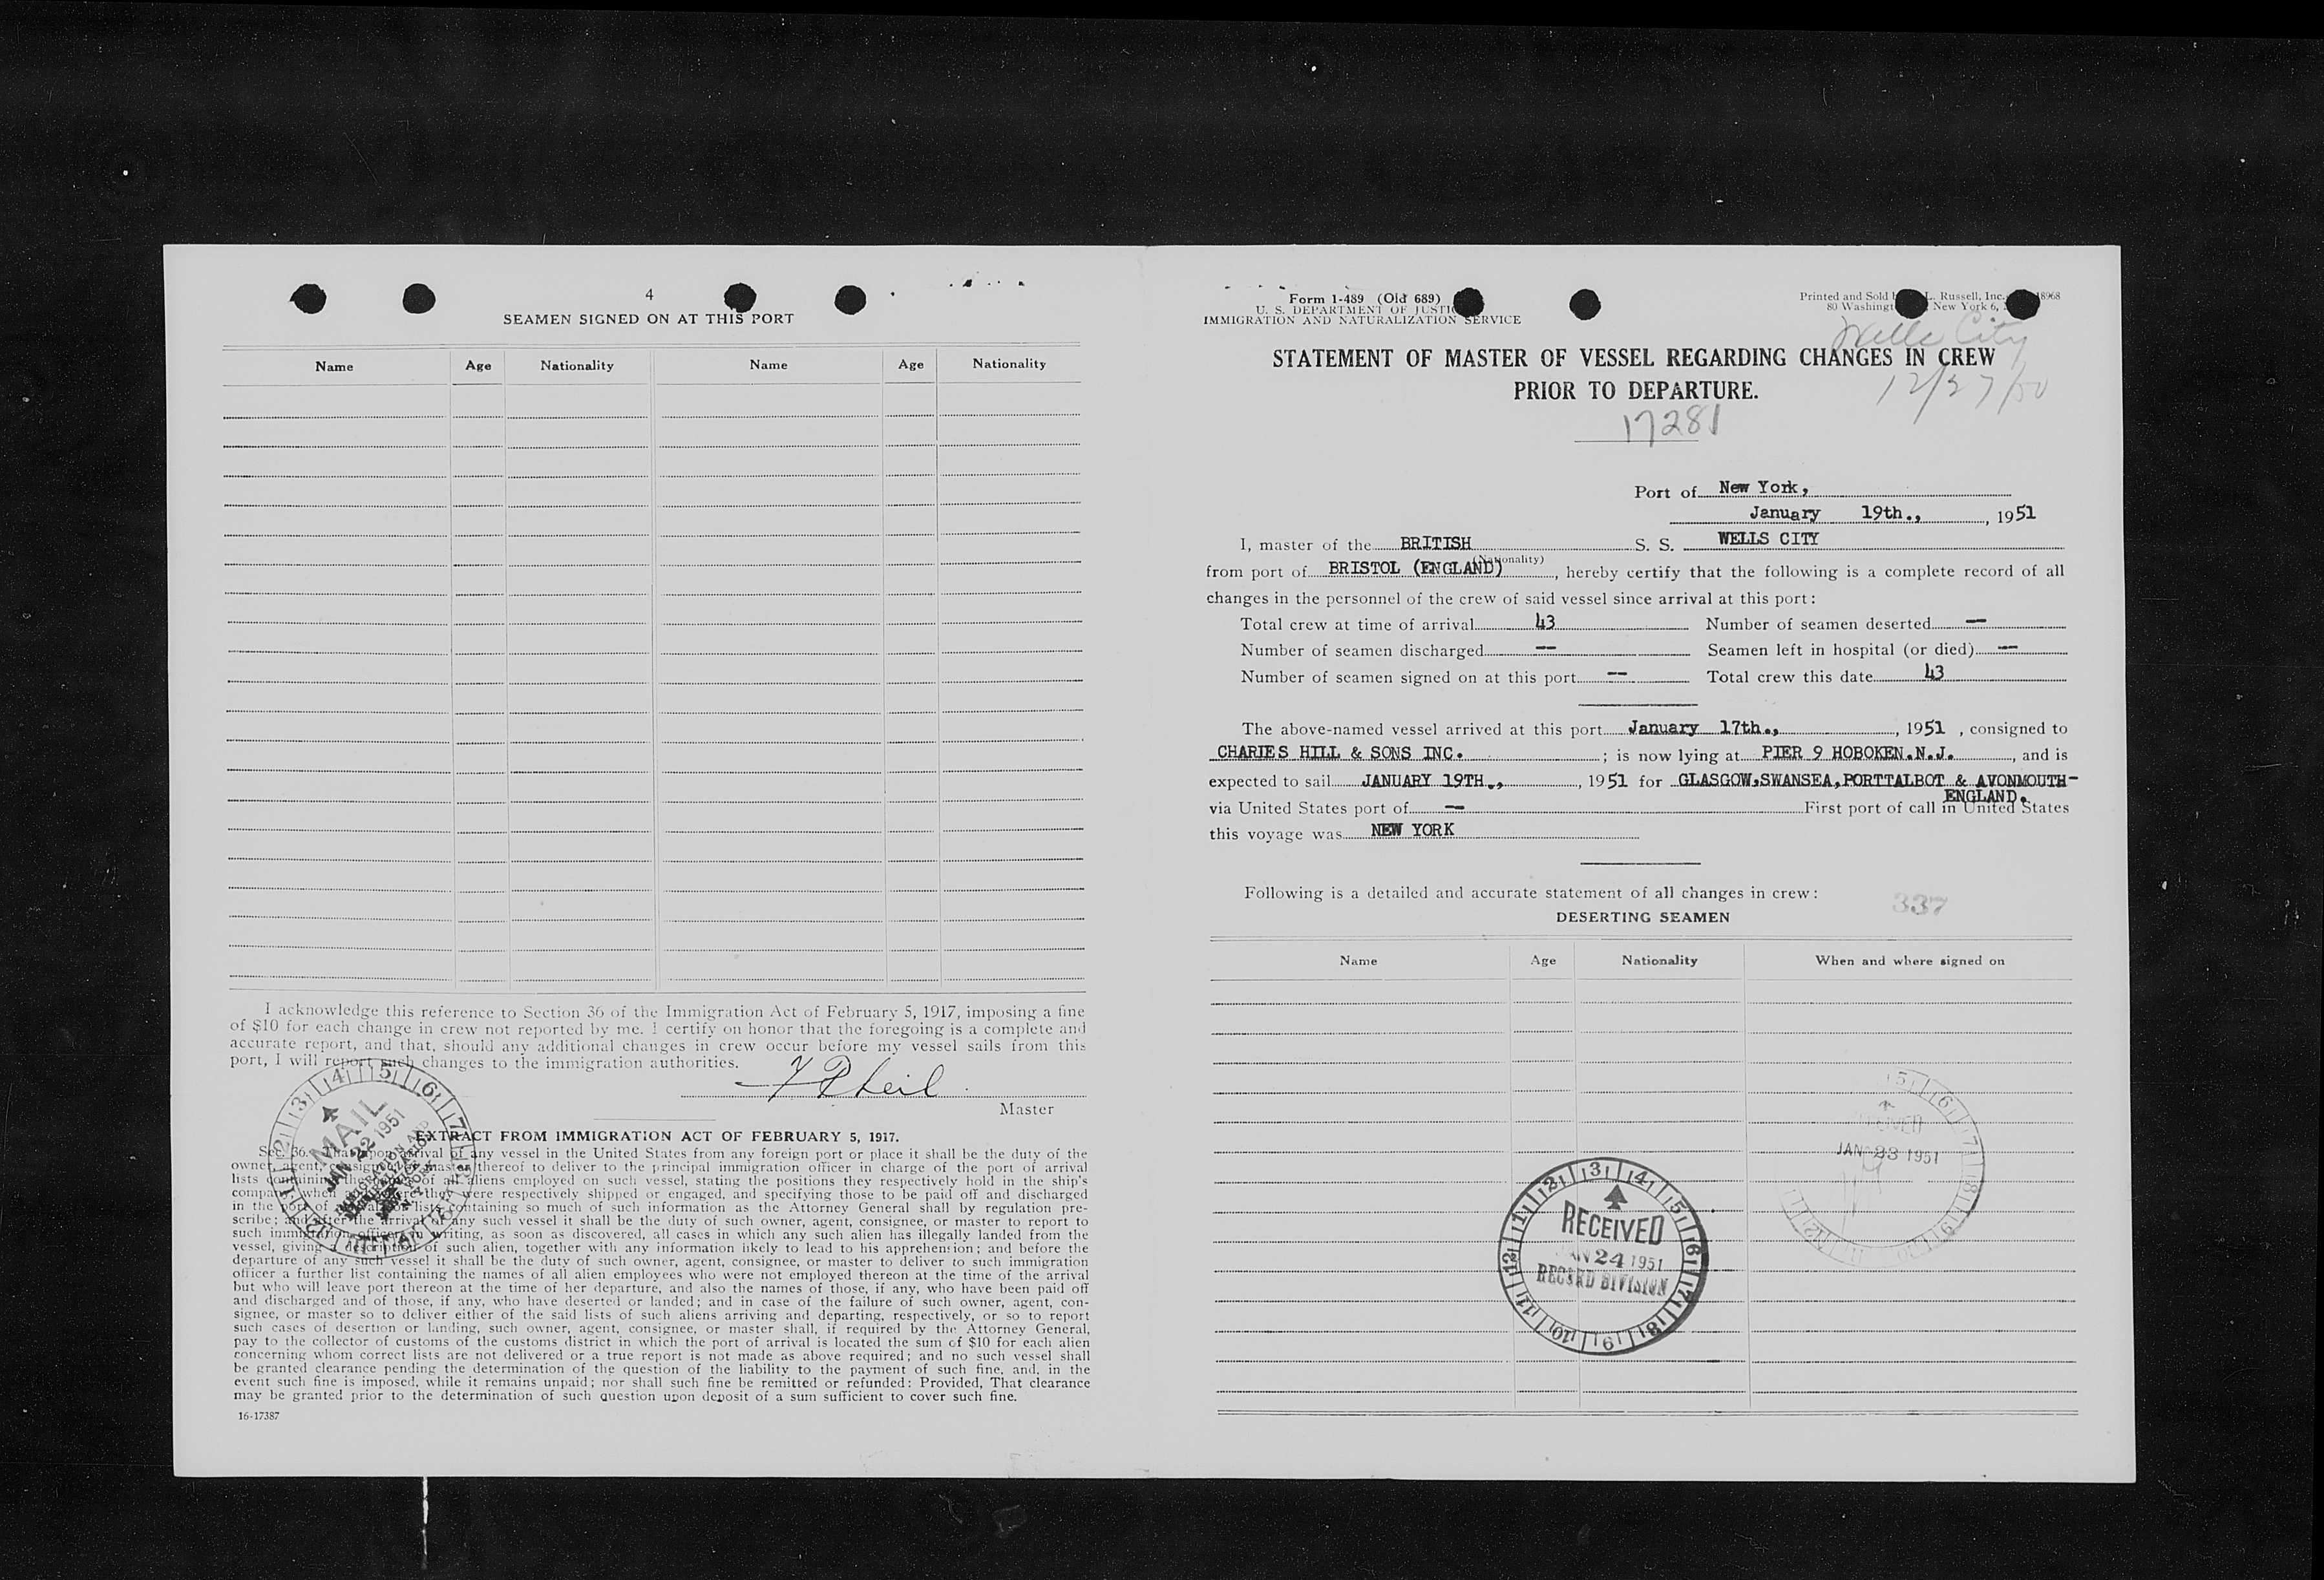 4
SEAMEN SIGNED ON AT THIS PORT
Name Age Nationality Name Age Nationality
I acknowledge this reference to Section 36 of the Immigration Act of February 5, 1917, imposing a fine
of $10 for each change in crew not reported by me. I certify on honor that the foregoing is a complete and
accurate report, and that, should any additional changes in crew occur before my vessel sails from this
port, I will report such changes to the immigration authorities.
Master
MAIL
JAN 22 1951
EXTRACT FROM IMMIGRATION ACT OF FEBRUARY 5, 1917.
Sec. 36. That upon arrival of any vessel in the United States from any foreign port or place it shall be the duty of the
owner, agent, consignee, or master thereof to deliver to the principal immigration officer in charge of the port of arrival
lists containing the names of all aliens employed on such vessel, stating the positions they respectively hold in the ship's
company, when and where they were respectively shipped or engaged, and specifying those to be paid off and discharged
in the port of arrival; or lists containing so much of such information as the Attorney General shall by regulation pre-
scribe; and after the arrival of any such vessel it shall be the duty of such owner, agent, consignee, or master to report to
such immigration officer, in writing, as soon as discovered, all cases in which any such alien has illegally landed from the
vessel, giving a description of such alien, together with any information likely to lead to his apprehension; and before the
departure of any such vessel it shall be the duty of such owner, agent, consignee, or master to deliver to such immigration
officer a further list containing the names of all alien employees who were not employed thereon at the time of the arrival
but who will leave port thereon at the time of her departure, and also the names of those, if any, who have been paid off
and discharged and of those, if any, who have deserted or landed; and in case of the failure of such owner, agent, con-
signee, or master so to deliver either of the said lists of such aliens arriving and departing, respectively, or so to report
such cases of desertion or landing, such owner, agent, consignee, or master shall, if required by the Attorney General,
pay to the collector of customs of the customs district in which the port of arrival is located the sum of $10 for each alien
concerning whom correct lists are not delivered or a true report is not made as above required; and no such vessel shall
be granted clearance pending the determination of the question of the liability to the payment of such fine, and, in the
event such fine is imposed, while it remains unpaid; nor shall such fine be remitted or refunded: Provided, That clearance
may be granted prior to the determination of such question upon deposit of a sum sufficient to cover such fine.
16-17387
Form 1-489 (Old 689)
U. S. DEPARTMENT OF JUSTICE
IMMIGRATION AND NATURALIZATION SERVICE
Printed and Sold L. Russell, Inc. 18968
80 Washingt New York 6,
Wells City
12/27/50
STATEMENT OF MASTER OF VESSEL REGARDING CHANGES IN CREW
PRIOR TO DEPARTURE.
17281
Port of New York,
January 19th., , 1951
I, master of the BRITISH S. S. WELLS CITY
(Nationality)
from port of BRISTOL (ENGLAND) , hereby certify that the following is a complete record of all
changes in the personnel of the crew of said vessel since arrival at this port:
Total crew at time of arrival 43 Number of seamen deserted —
Number of seamen discharged — Seamen left in hospital (or died) —
Number of seamen signed on at this port — Total crew this date 43
The above-named vessel arrived at this port January 17th., , 1951 , consigned to
CHARIES HILL & SONS INC. ; is now lying at PIER 9 HOBOKEN.N.J. , and is
expected to sail JANUARY 19TH., , 1951 for GLASGOW,SWANSEA,PORTTALBOT & AVONMOUTH-
ENGLAND.
via United States port of — First port of call in United States
this voyage was NEW YORK
Following is a detailed and accurate statement of all changes in crew:
337
DESERTING SEAMEN
Name Age Nationality When and where signed on
JAN 23 1951
RECEIVED
JAN 24 1951
RECORD DIVISION